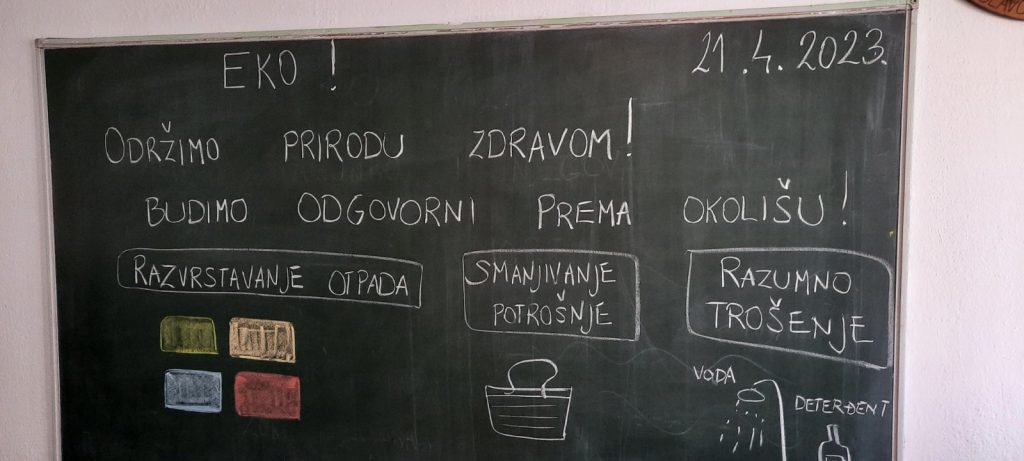 EKO !
21.4.2023.
ODRŽIMO PRIRODU ZDRAVOM!
BUDIMO ODGOVORNI PREMA OKOLIŠU!
RAZVRSTAVANJE OTPADA
SMANJIVANJE
POTROŠNJE
RAZUMNO
TROŠENJE
VODA
DETERĐENT